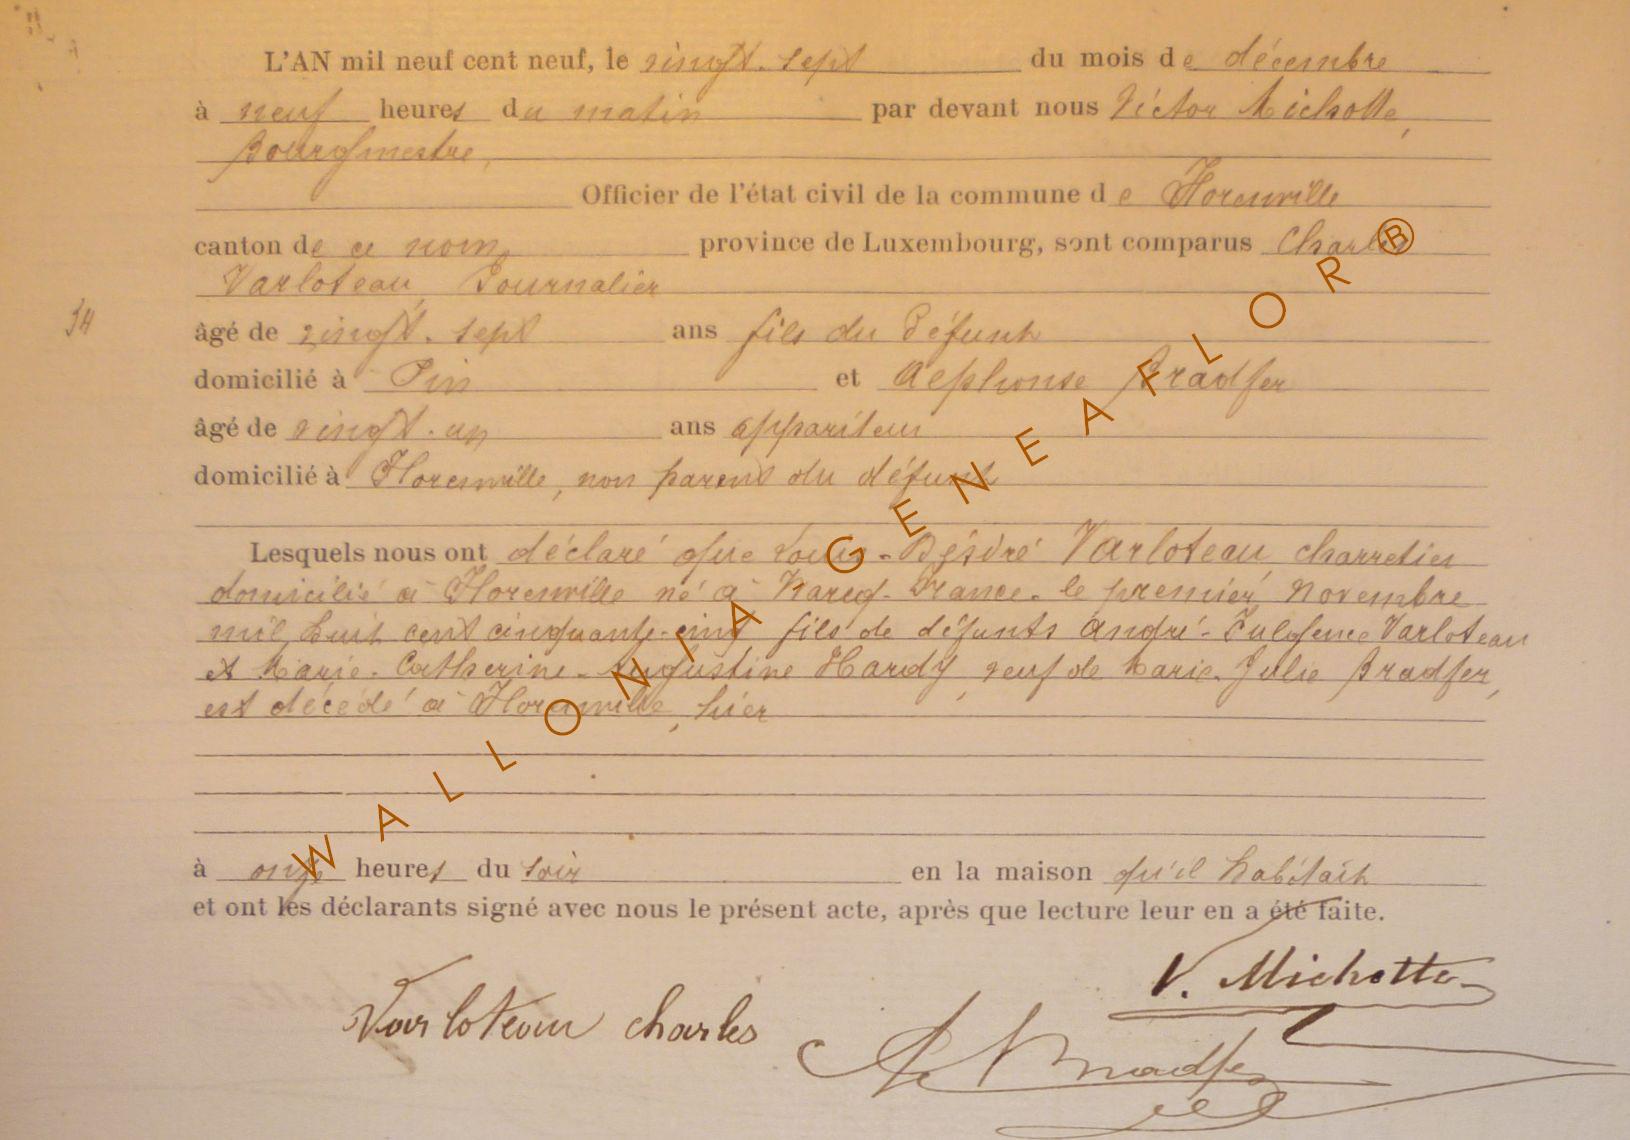 L'AN mil neuf cent neuf, le vingt-sept du mois de décembre
à neuf heures du matin par devant nous Victor Michotte,
Bourgmestre,
Officier de l'état civil de la commune de Florenville
canton de ce nom, province de Luxembourg, sont comparus Charles
Varloteau, Journalier
34
âgé de vingt-sept ans fils du Défunt
domicilié à Pin et Alphonse Bradfer
âgé de vingt-un ans appariteur
domicilié à Florenville, non parent du défunt
Lesquels nous ont déclaré que Louis-Désiré Varloteau, charretier
domicilié à Florenville né à France-le premier Novembre
mil huit cent cinquante-cinq fils de défunts André-Fulgence Varloteau
et Marie-Catherine-Augustine Hardy, veuf de Marie-Julie Bradfer,
est décédé à Florenville, hier
à onze heures du soir en la maison qu'il habitait
et ont les déclarants signé avec nous le présent acte, après que lecture leur en a été faite.
V. Michotte
Varloteau charles
A Bradfer
WALLONIA GENEAFLOR ®